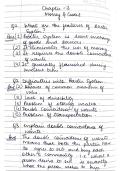 Chapter - 3
Money & Credit
Q1 What are the features of Barter System
Ans) Barter System is direct exchange
of goods and services
2) It eliminates the use of money
3) It requires the double coincidence
of wants
4) It generally flourished during
Q2 Difficulties with Barter System
Ans 1) Absence of common medium of
value
2) Lack of divisibility
3) Problem of storing wealth
4) Double Coincidence of wants
5) Problem of Transportation
Q3 Explain double coincidence of
wants.
Ans The double coincidence of wants
means that both the parties have
to agree to sell and buy each
other's commodity i.e. what a
person desire to sell is exactly
what the other wishes to buy